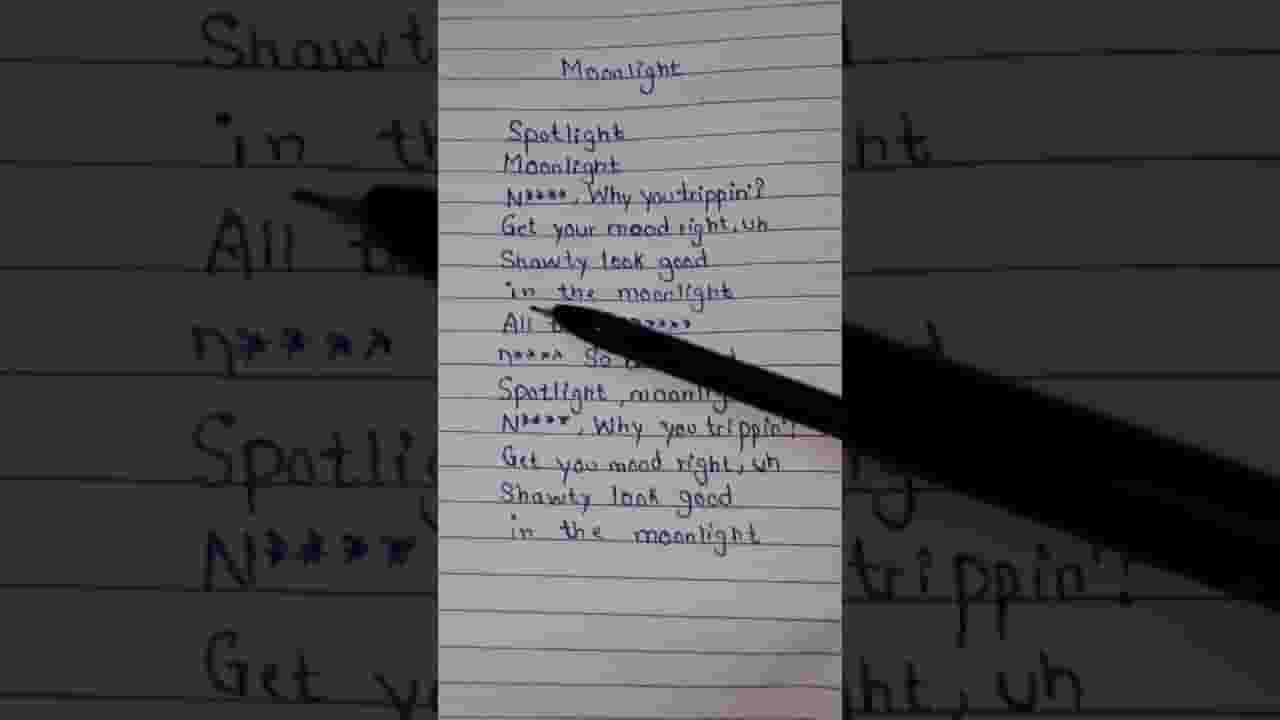 Moonlight
Spotlight
Moonlight
N****, Why you trippin'?
Get your mood right, uh
Shawty look good
in the moonlight
All
n**** So
Spotlight, moonlig
N****, Why you trippin'!
Get you mood right, uh
Shawty look good
in the moonlight